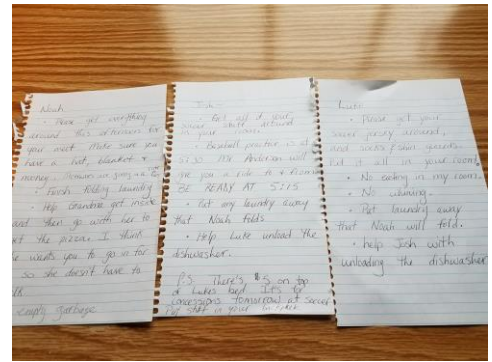 Noah
• Please get everything
around this afternoon for
your meet. Make sure you
have a hat, blanket &
money.
• Finish folding laundry
• Help Grandma get inside
and then go with her to
get the pizza. I think
she wants you to go in for
so she doesn't have to
empty garbage
Josh -
• Pick all of your
soccer stuff around
in your room.
• Baseball practice is at
5:30. Mr. Anderson will
give you a ride to & from
BE READY AT 5:15
• Put any laundry away
that Noah folds
• Help Luke unload the
dishwasher.
P.S. There's $5 on top
of Luke's bed. It's for
concessions tomorrow at soccer
Put stuff in your
Luke
• Please get your
soccer jersey around,
and socks/shin guards.
Put it all in your room.
• No eating in my room.
• No whining.
• Put laundry away
that Noah will fold.
• help Josh with
unloading the dishwasher